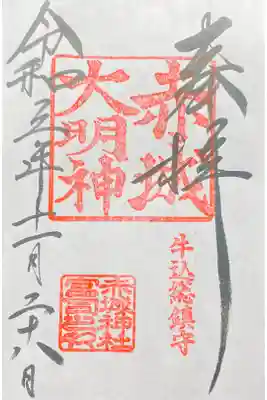 奉拝
赤城
大明神
牛込総鎮守
赤城神社
令和五年十一月二十八日